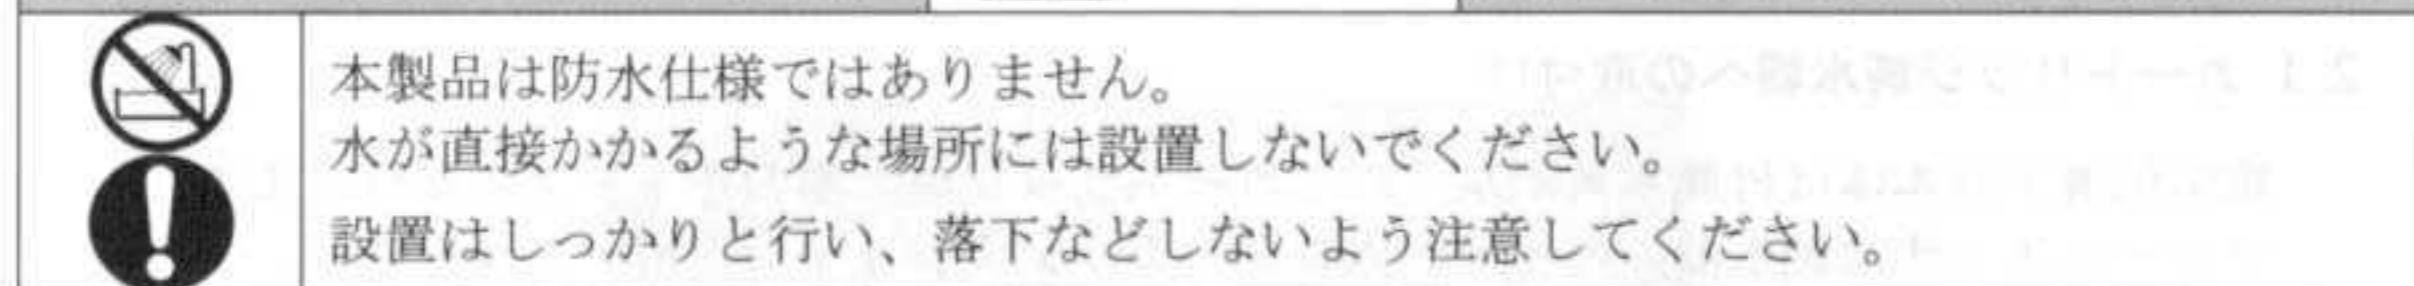 本製品は防水仕様ではありません。
水が直接かかるような場所には設置しないでください。
設置はしっかりと行い、落下などしないよう注意してください。